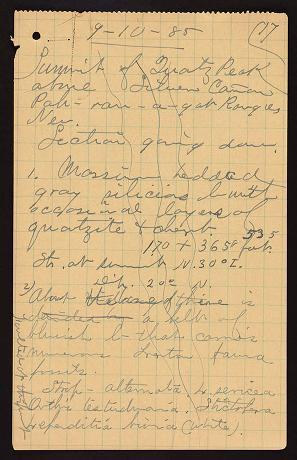 9-10-85
Summit of Quatz Peak
above Silver Cañon
Pah-ran-a-gat Ranges
Nev.
Section going down.
1. Massive bedded
gray silicious l- with
occasional layers of
quatzite & chert.
170 + 365 535
St. at summit N. 30° E.
Dip. 20° N.
2) About the base of there is
a belt of
bluish l- that carries
numerous fauna
fossils.
Strop- alternata, L. sericea
Orthis testudinaria,
Leperditia bivia (white).